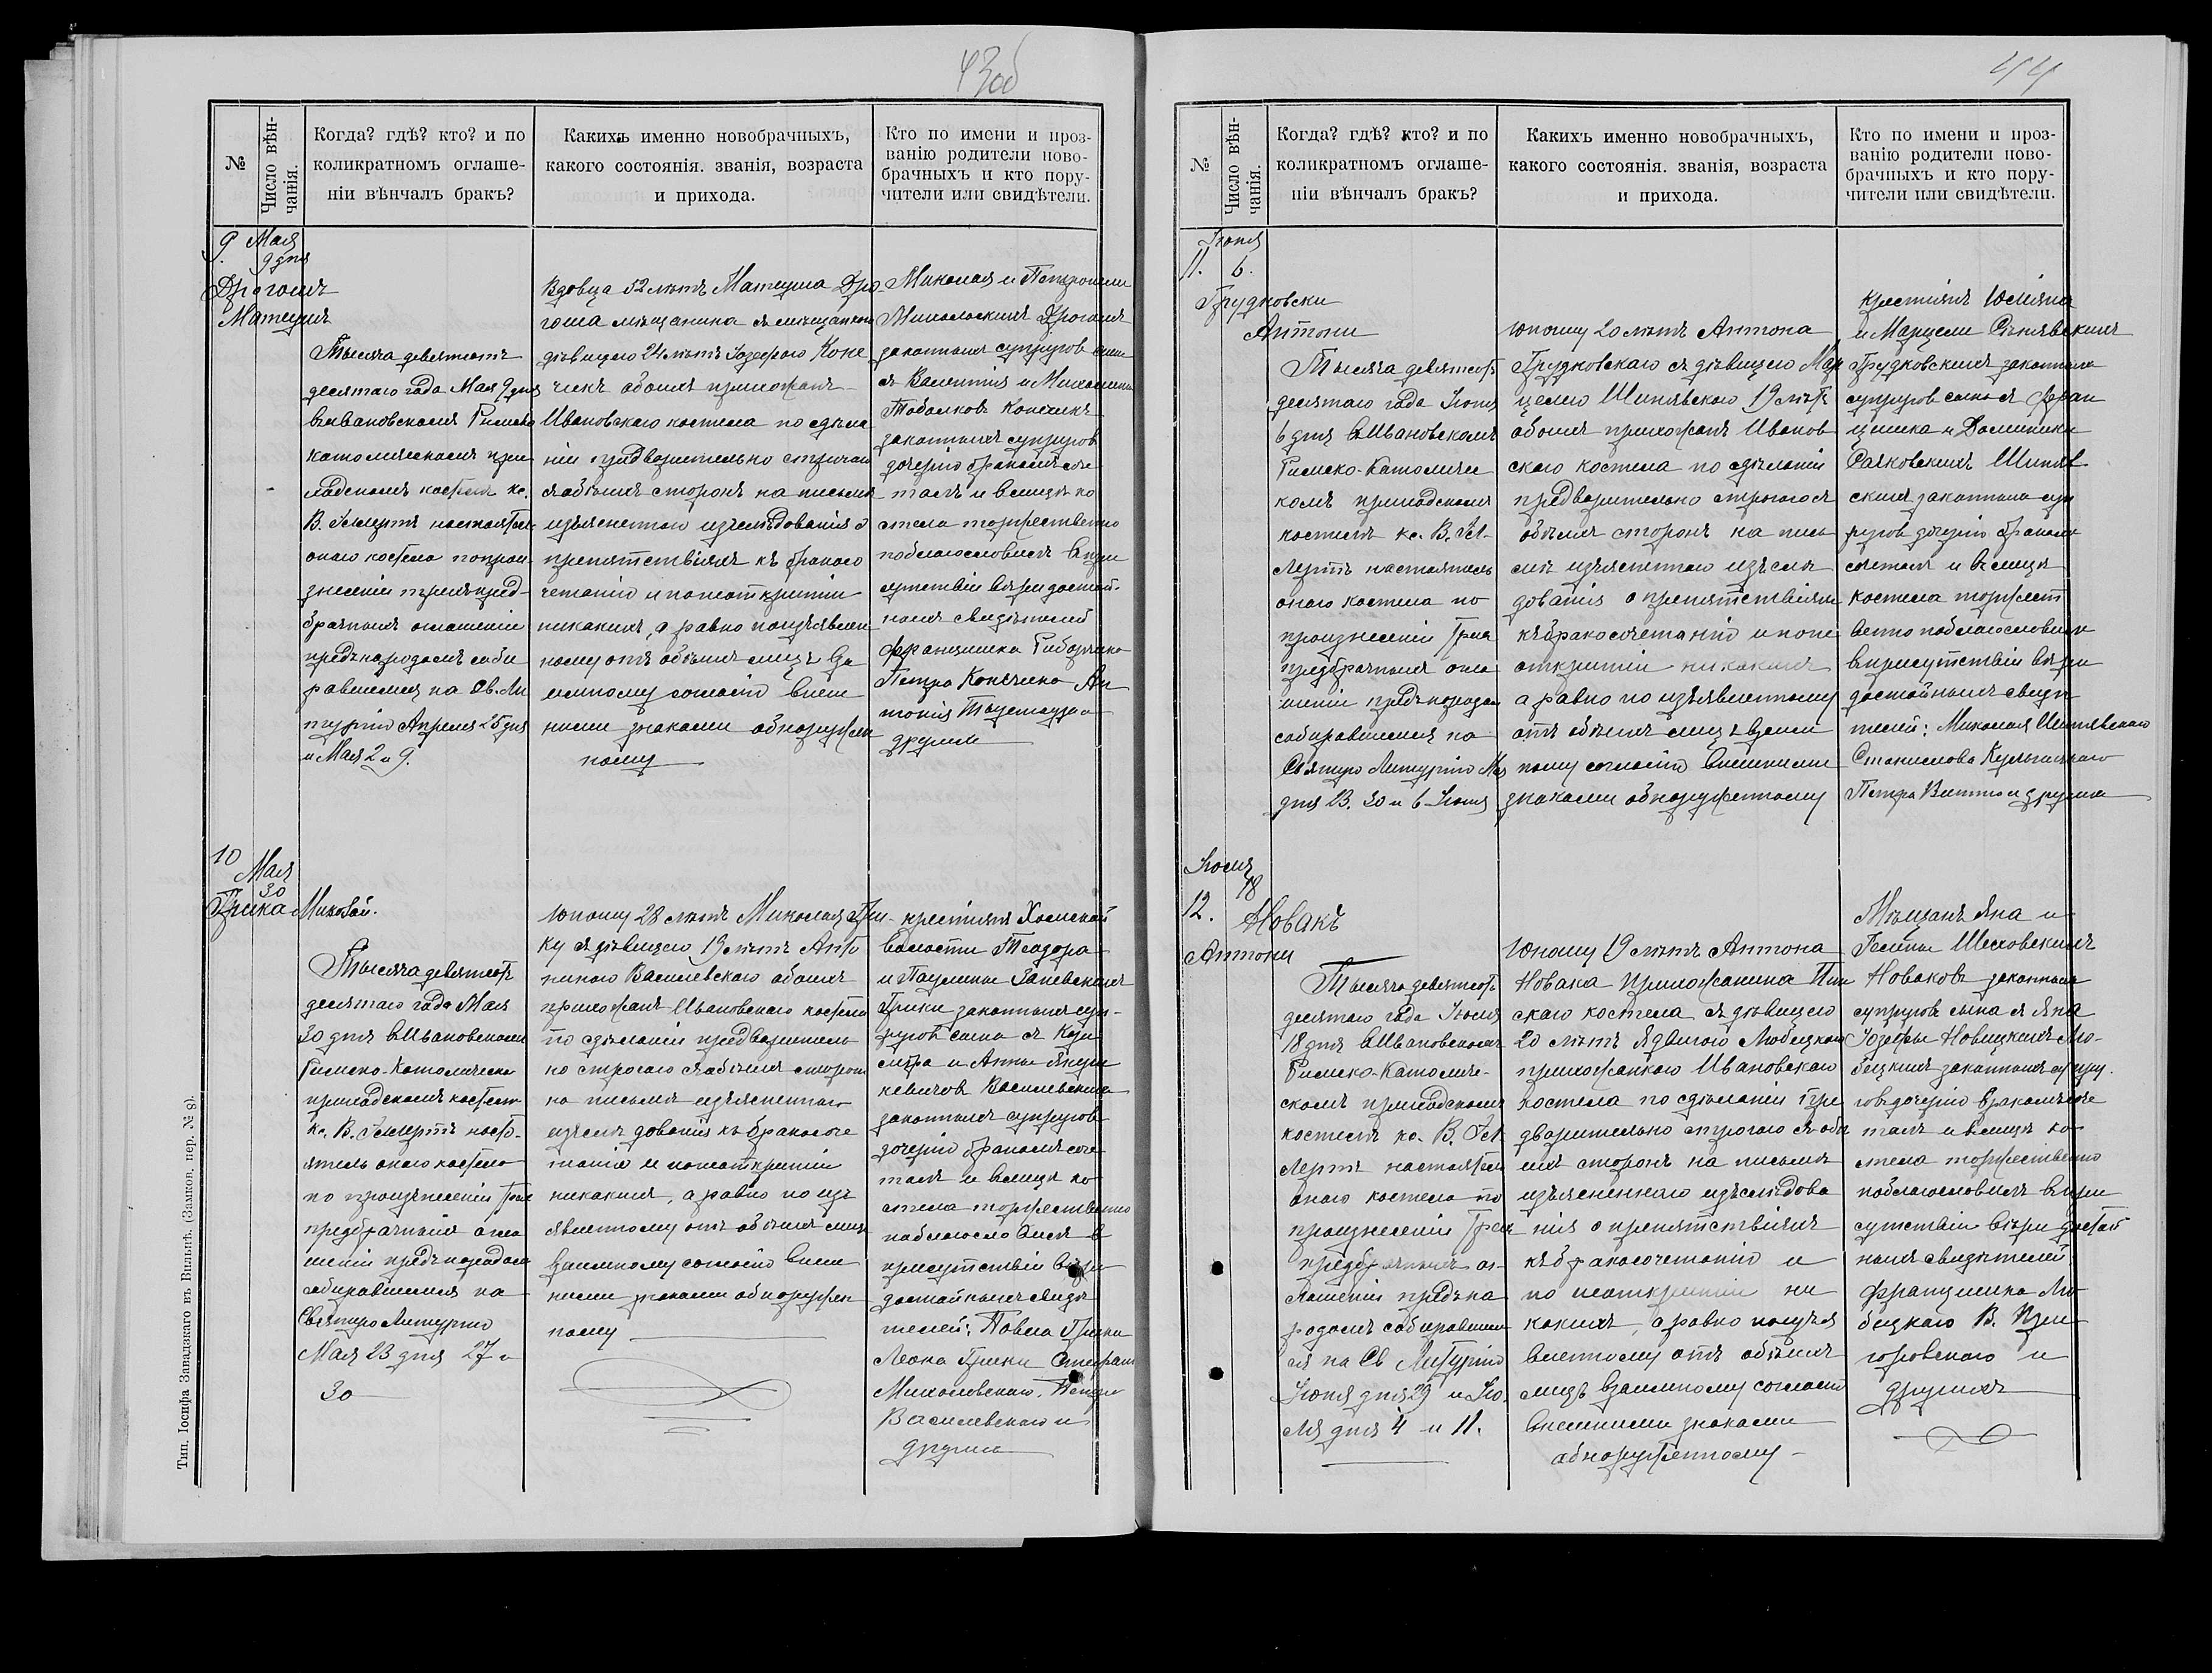 43об
№
Число вѣн-
чанія.
Когда? гдѣ? кто? и по
коликратномъ оглаше-
ніи вѣнчалъ бракъ?
Какихъ именно новобрачныхъ,
какого состоянія. званія, возраста
и прихода.
Кто по имени и проз-
ванію родители ново-
брачныхъ и кто пору-
чители или свидѣтели.
9 Мая
9 дня
Матеушъ
Тысяча девятьсотъ
десятаго года Мая 9 дня
въ Ивановскомъ Римско
католическомъ при
ходскомъ костелѣ кс.
В. Гельмертъ настоятель
онаго костела по прои
знесеніи трехъ пред-
брачныхъ оглашеній
предъ народомъ соби
равшимся на Св. Ли
тургію Апреля 25 дня
и Мая 2 и 9.
Вдовца 52 лѣтъ Матеуша Дро-
гоша мѣщанина съ мѣщанкою
дѣвицею 24 лѣтъ Іозефою Коне
чикъ обоихъ прихожанъ
Ивановскаго костела по сдѣла
ніи предварительно строгаго
съ обѣихъ сторонъ на письмѣ
изъясненнаго изслѣдованія о
препятствіяхъ къ бракосо
четанію и по неоткрытіи
никакихъ, а равно по изъявлен
ному отъ обѣихъ лицъ вза
имному согласію внѣш
ними знаками обнаружен
ному
Николая и Петронели
Микольскихъ Дрогошъ
законныхъ супруговъ сына
съ Валентія и Михалины
законныхъ супруговъ
дочерію бракомъ соче
талъ и въ лицѣ ко
стела торжественно
поблагословилъ въ при
сутствіи вѣры достой-
ныхъ свидѣтелей
Францишка
Петра Конечика Ан
тонія
другихъ
10
Мая
30
Грика Миколай.
Тысяча девятьсотъ
десятаго года Мая
30 дня въ Ивановскомъ
Римско-Католическо
приходскомъ костелѣ
кс. В. Гельмертъ насто-
ятель онаго костела
по произнесеніи трехъ
предбрачныхъ огла
шеній предъ народомъ
собиравшимся на
Святую Литургію
Мая 23 дня 27 и
30
Юношу 28 лѣтъ Миколая Гри-
ку съ дѣвицею 19 лѣтъ Анто
ниною Василевскою обоихъ
прихожанъ Ивановскаго костела
по сдѣланіи предваритель
но строгаго съ обѣихъ сторонъ
на письмѣ изъясненнаго
изслѣдованія къ бракосоче
танію и по неоткрытіи
никакихъ, а равно по изъ
явленному отъ обѣихъ лицъ
взаимному согласію внѣш
ними знаками обнаружен
ному
крестьянъ Хомской
волости Теодора
и Паулины Заневскихъ
Грики законныхъ суп-
руговъ сына съ Кази
міра и Анны Янцу
кевичовъ Василевскихъ
законныхъ супруговъ
дочерію бракомъ соче
талъ и въ лицѣ ко
стела торжественно
поблагословилъ въ
присутствіи вѣры
достойныхъ свидѣ
телей: Павла Грики
Леона Грики Стефана
Михалевскаго, Петра
Василевскаго и
другихъ
Тип. Іосифа Завадзкаго въ Вильнѣ. (Замков. пер. № 8).
44
№
Число вѣн-
чанія.
Когда? гдѣ? кто? и по
коликратномъ оглаше-
ніи вѣнчалъ бракъ?
Какихъ именно новобрачныхъ,
какого состоянія. званія, возраста
и прихода.
Кто по имени и проз-
ванію родители ново-
брачныхъ и кто пору-
чители или свидѣтели.
Іюня
11. 6.
Грудковски
Антони
Тысяча девятсотъ
десятаго года Іюня
6 дня въ Ивановскомъ
Римско-Католичес
комъ приходскомъ
костелѣ кс. В. Гел-
мертъ настоятель
онаго костела по
произнесеніи трехъ
предбрачныхъ огла
шеній предъ народом
собиравшимся на
Святую Литургію Мая
дня 23. 30 и 6 Іюня
Юношу 20 лѣтъ Антона
Грудковскаго съ дѣвицею Мар
целею Шинявскою 19 лѣтъ
обоихъ прихожанъ Иванов
скаго костела по сдѣланіи
предварительно строгаго съ
обѣихъ сторонъ на пись
мѣ изъясненнаго изслѣ
дованія о препятствіяхъ
къ бракосочетанію и по не
открытіи никакихъ
а равно по изъявленному
отъ обѣихъ лицъ взаим
ному согласію внѣшними
знаками обнаруженному
Крестьянъ Юліяна
и Марцели
Грудковскихъ законныхъ
супруговъ сына съ Фран
цишка и Доминики
Рачковскихъ Шиняв
скихъ законныхъ суп
руговъ дочерію бракомъ
сочеталъ и въ лицѣ
костела торжест
венно поблагословилъ
въ присутствіи вѣры
достойныхъ свидѣ
телей: Миколая Шинявскаго
Станислава
Петра и другихъ
Іюля
18
12.
Новакъ
Антони
Тысяча девятсотъ
десятаго года Іюля
18 дня въ Ивановскомъ
Римско-Католиче-
скомъ приходскомъ
костелѣ кс. В. Гел
мертъ настоятель
онаго костела по
произнесеніи трехъ
предбрачныхъ ог-
лашеній предъ на
родомъ собиравшим
ся на Св Литургію
Іюня дня 29 и Ію-
ля дня 4 и 11.
Юношу 19 лѣтъ Антона
Новака прихожанина Пин
скаго костела съ дѣвицею
20 лѣтъ Ядвигою Любецкою
прихожанкою Ивановскаго
костела по сдѣланіи пре
дварительно строгаго съ обѣ
ихъ сторонъ на письмѣ
изъясненнаго изслѣдова
нія о препятствіяхъ
къ бракосочетанію и
по неоткрытіи ни
какихъ, а равно по изъя
вленному отъ обѣихъ
лицъ взаимному согласію
внѣшними знаками
обнаруженному
Мѣщанъ Яна и
Новаковъ законныхъ
супруговъ сына съ Яна
Юзефы Новицкихъ Лю-
бецкихъ законныхъ супру-
говъ дочерію бракомъ соче
талъ и въ лицѣ ко
стела торжественно
поблагословилъ въ при
сутствіи вѣры достой
ныхъ свидѣтелей:
Францишка Лю
бецкаго В.
и
другихъ